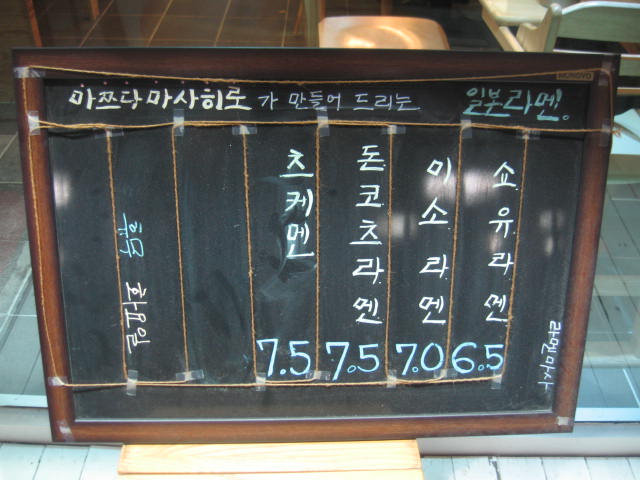 마쯔다 마사히로가 만들어 드리는 일본라멘.
쇼유라멘 6.5
미소라멘 7.0
돈코츠라멘 7.5
츠케멘 7.5
화요일
라멘마사